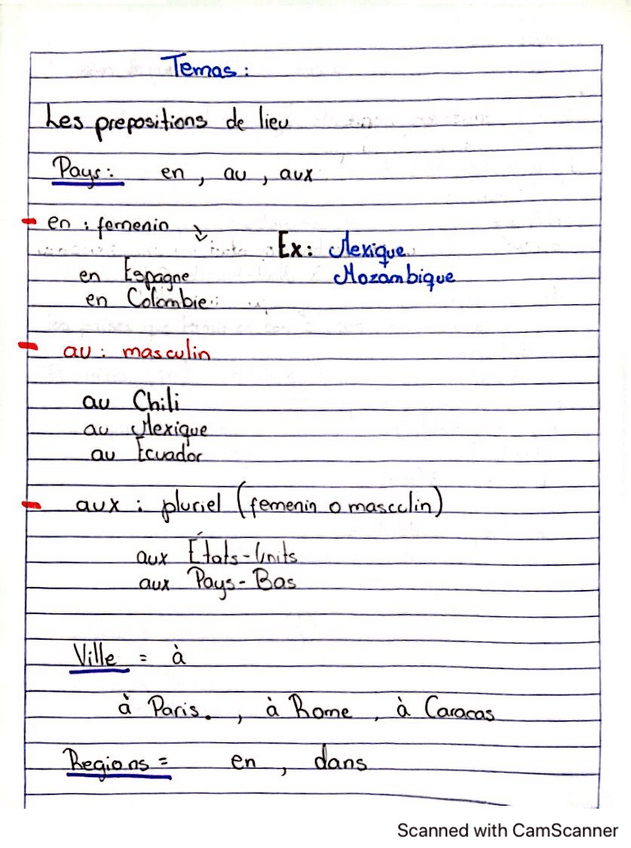 Temas:
Les prepositions de lieu
Pays: en, au, aux
- en : femenin
Ex: Mexique
Mozambique
en Espagne
en Colombie
- au : masculin
au Chili
au Mexique
au Ecuador
- aux : pluriel (femenin o masculin)
aux États-Units
aux Pays-Bas
Ville = à
à Paris. , à Rome , à Caracas
Regions = en, dans
Scanned with CamScanner